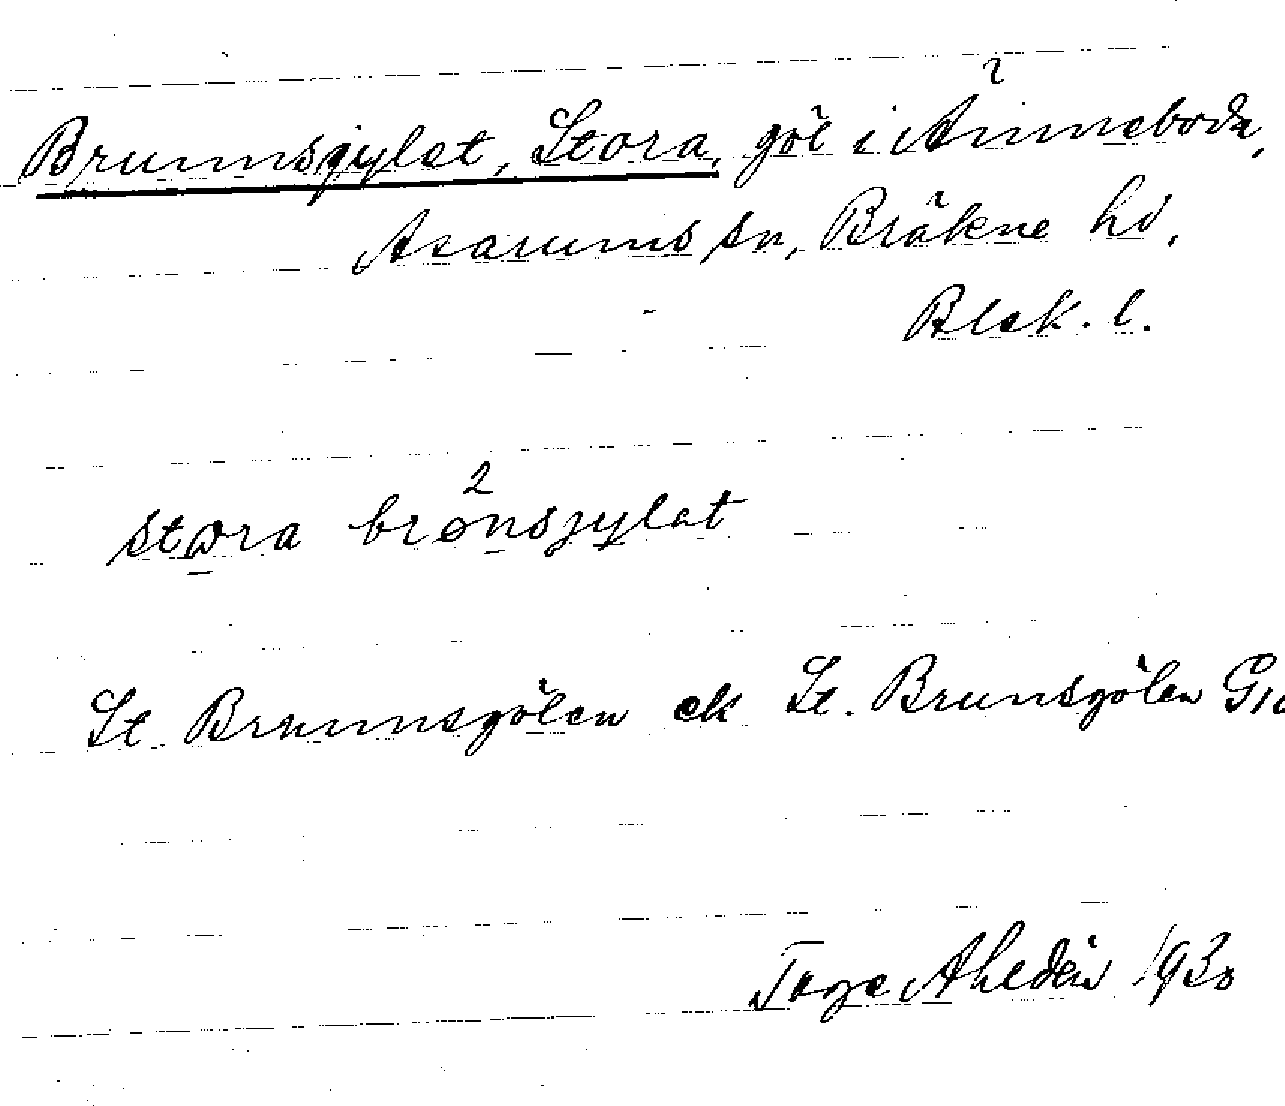 Brunnsgylet, Stora, göl i Ånneboda,
Asarums sn, Bräkne hd,
Blek. l.
stora brønsjylat
St. Brunnsgölen ek St. Brunsgölen
Tage Ahldén 1930